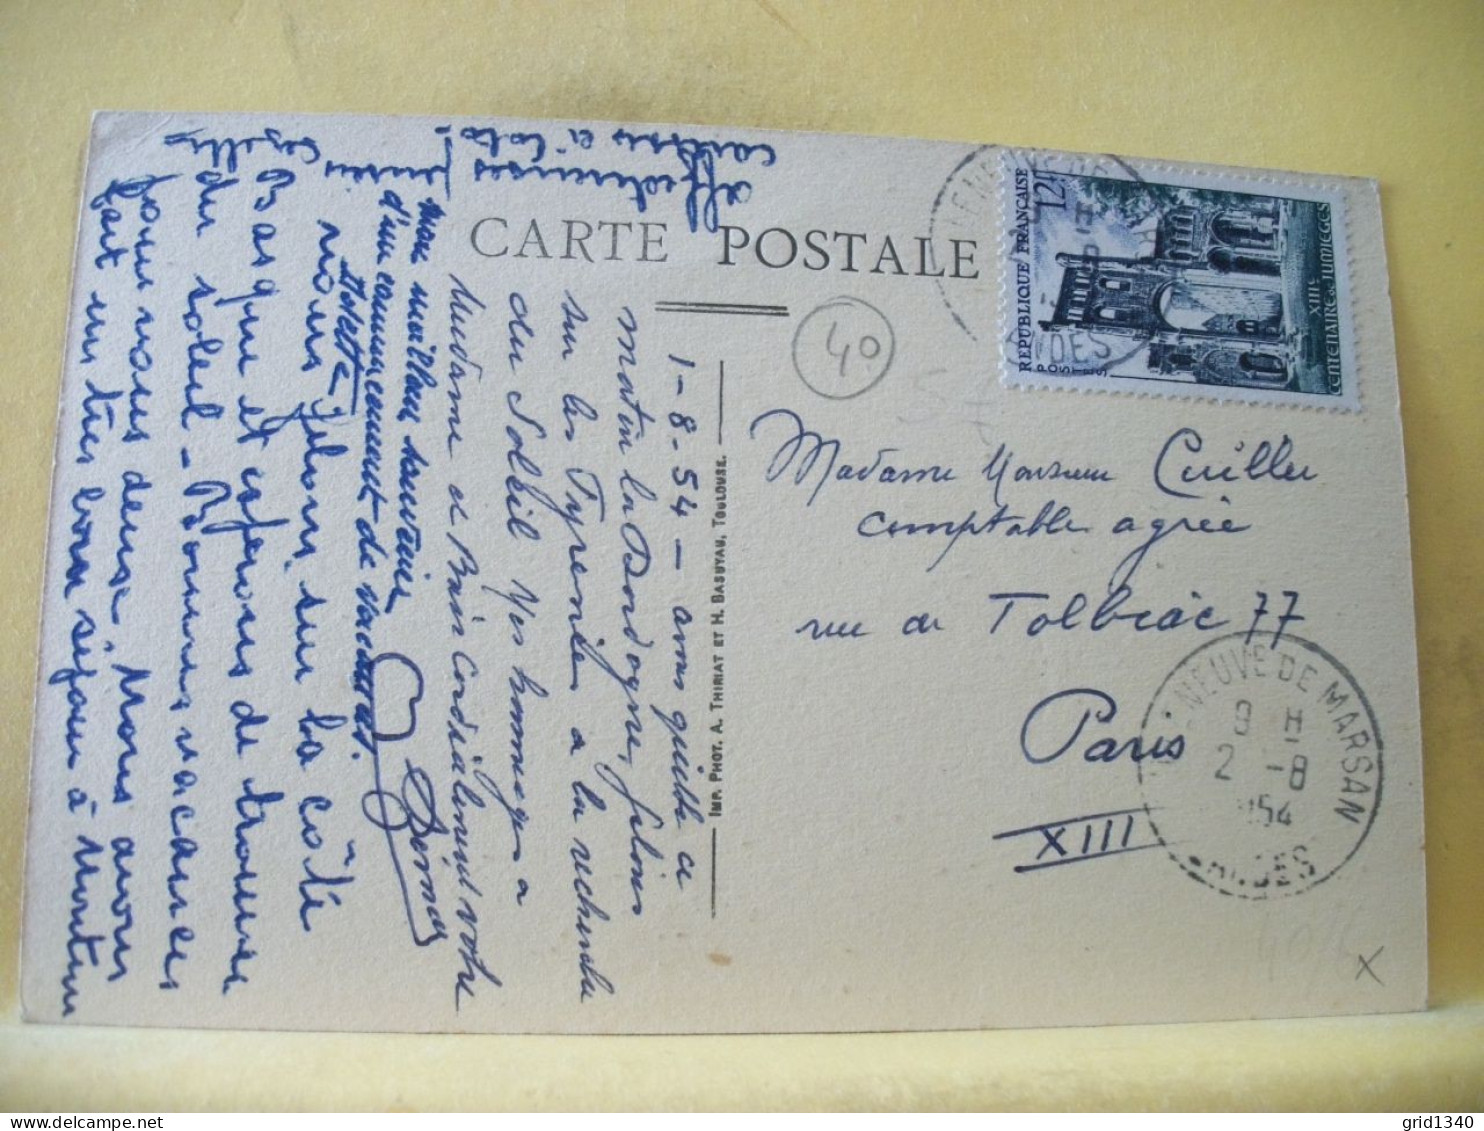 CARTE POSTALE
1-8-54 - avons quitté ce
matin la Dordogne, filons
sur les Pyrénées à la recherche
du Soleil. Mes hommages à
Madame et bien cordialement votre
Imp. Phot. A. Thiriat et H. Basuyau, Toulouse.
nous filons sur la côte
Basque et espérons de trouver
du soleil - Bonnes vacances
pour vous deux. Nous avons
fait un très bon séjour à
mon meilleur souvenir
d'un commencement de vacances.
affectueuses
caresses
RÉPUBLIQUE FRANÇAISE
12F
POSTES
XIIIE
CENTENAIRE DE JUMIÈGES
40
Madame Monsieur Cuiller
comptable agréé
rue de Tolbiac 77
Paris
XIII
NEUVE DE MARSAN
9 H
2 -8
1954
X
grid1340